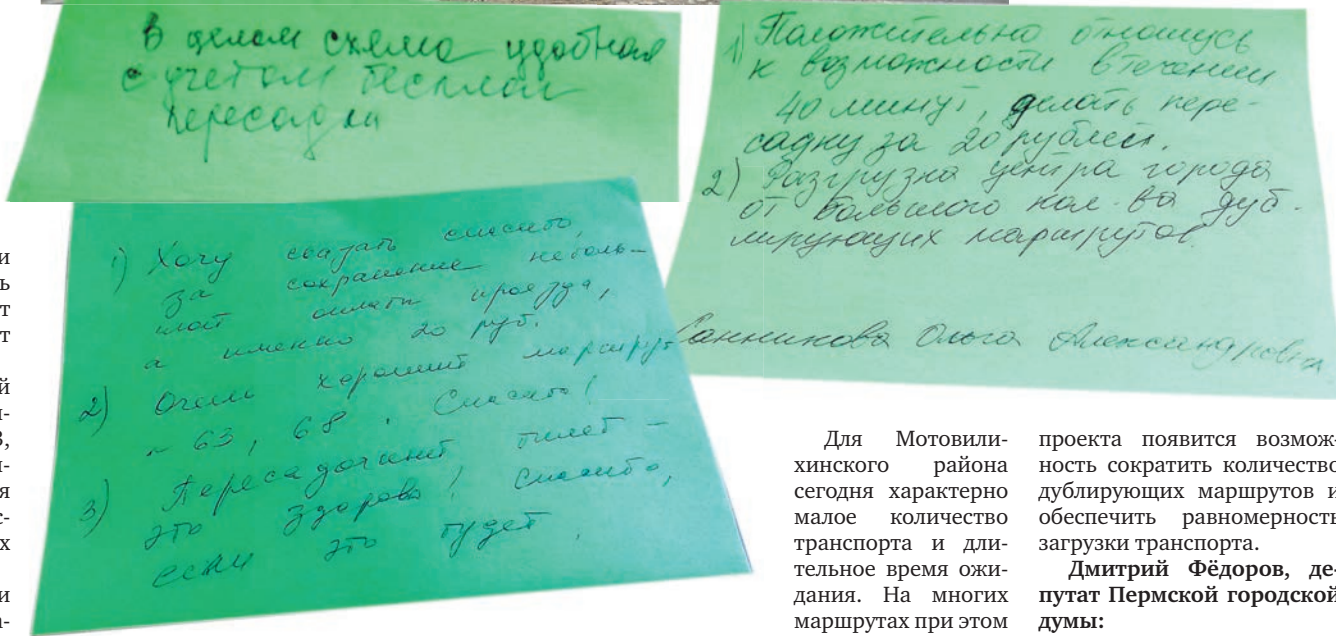 В целом схема удобная
с учетом бесплат
пересадки
1) Положительно отношусь
к возможности в течении
40 минут, делать пере-
садку за 20 рублей.
2) Разгрузка центра города
от большого кол-ва дуб-
лирующих маршрутов.
Санникова Ольга Александровна
1) Хочу сказать спасибо,
за сохранение неболь-
шой оплаты проезда,
а именно 20 руб.
2) Очень хороший маршрут
~ 63, 68. Спасибо!
3) Пересадочный билет –
это здорово! Спасибо,
если это будет.
и
ь
т
т
й
и-
З,
и-
я
с-
х
и
а-
Для Мотовили-
хинского района
сегодня характерно
малое количество
транспорта и дли-
тельное время ожи-
дания. На многих
маршрутах при этом
проекта появится возмож-
ность сократить количество
дублирующих маршрутов и
обеспечить равномерность
загрузки транспорта.
Дмитрий Фёдоров, де-
путат Пермской городской
думы: